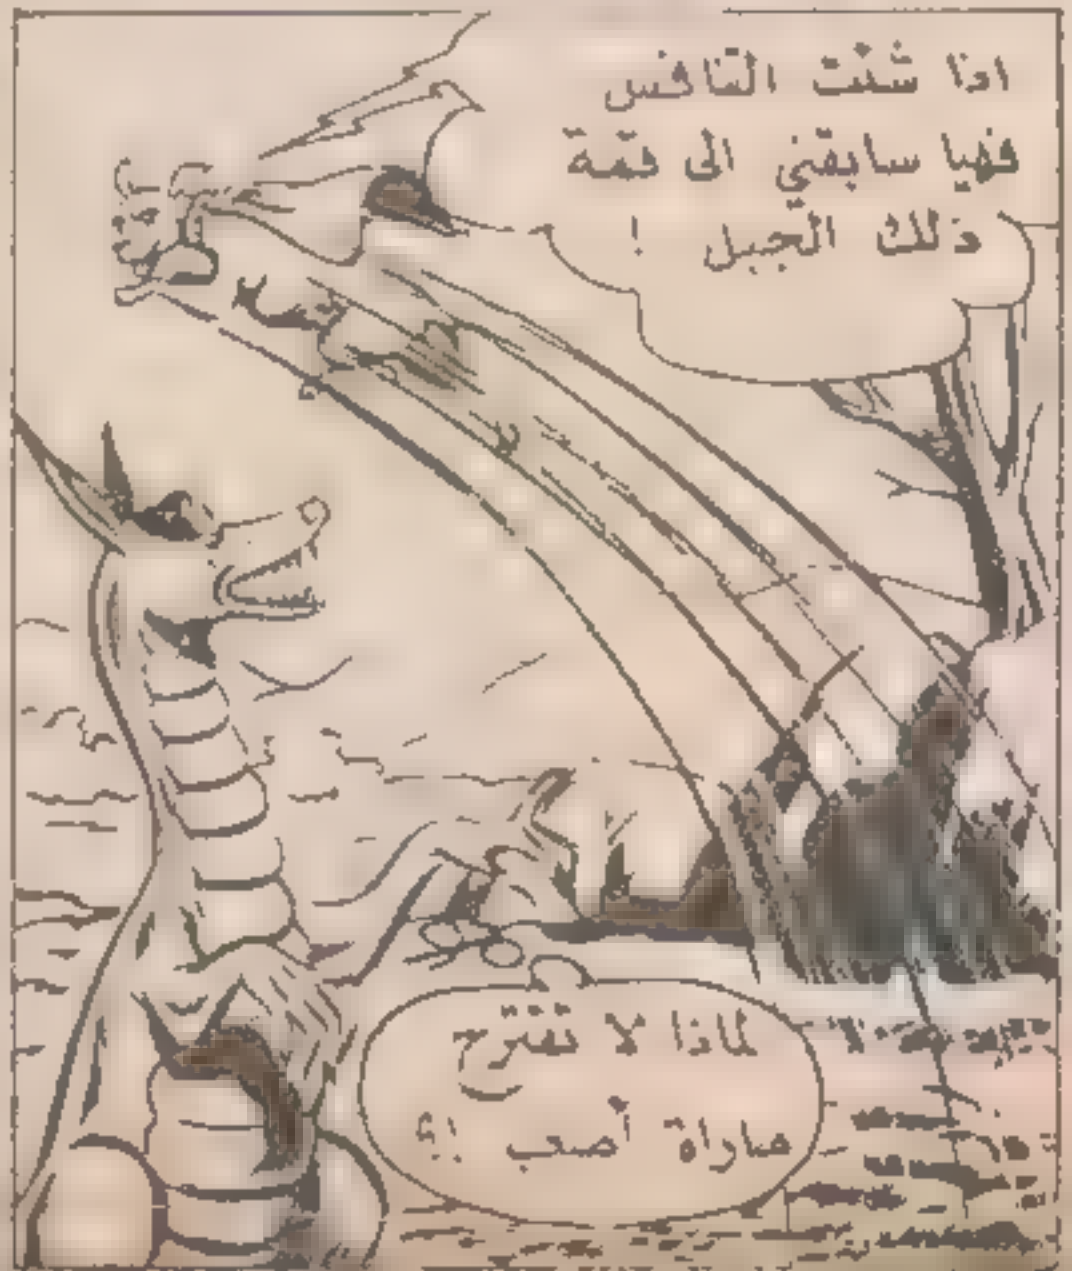 اذا شئت التنافس
فهيا سابقني الى قمة
ذلك الجبل !
لماذا لا تقترح
مباراة أصعب ؟!